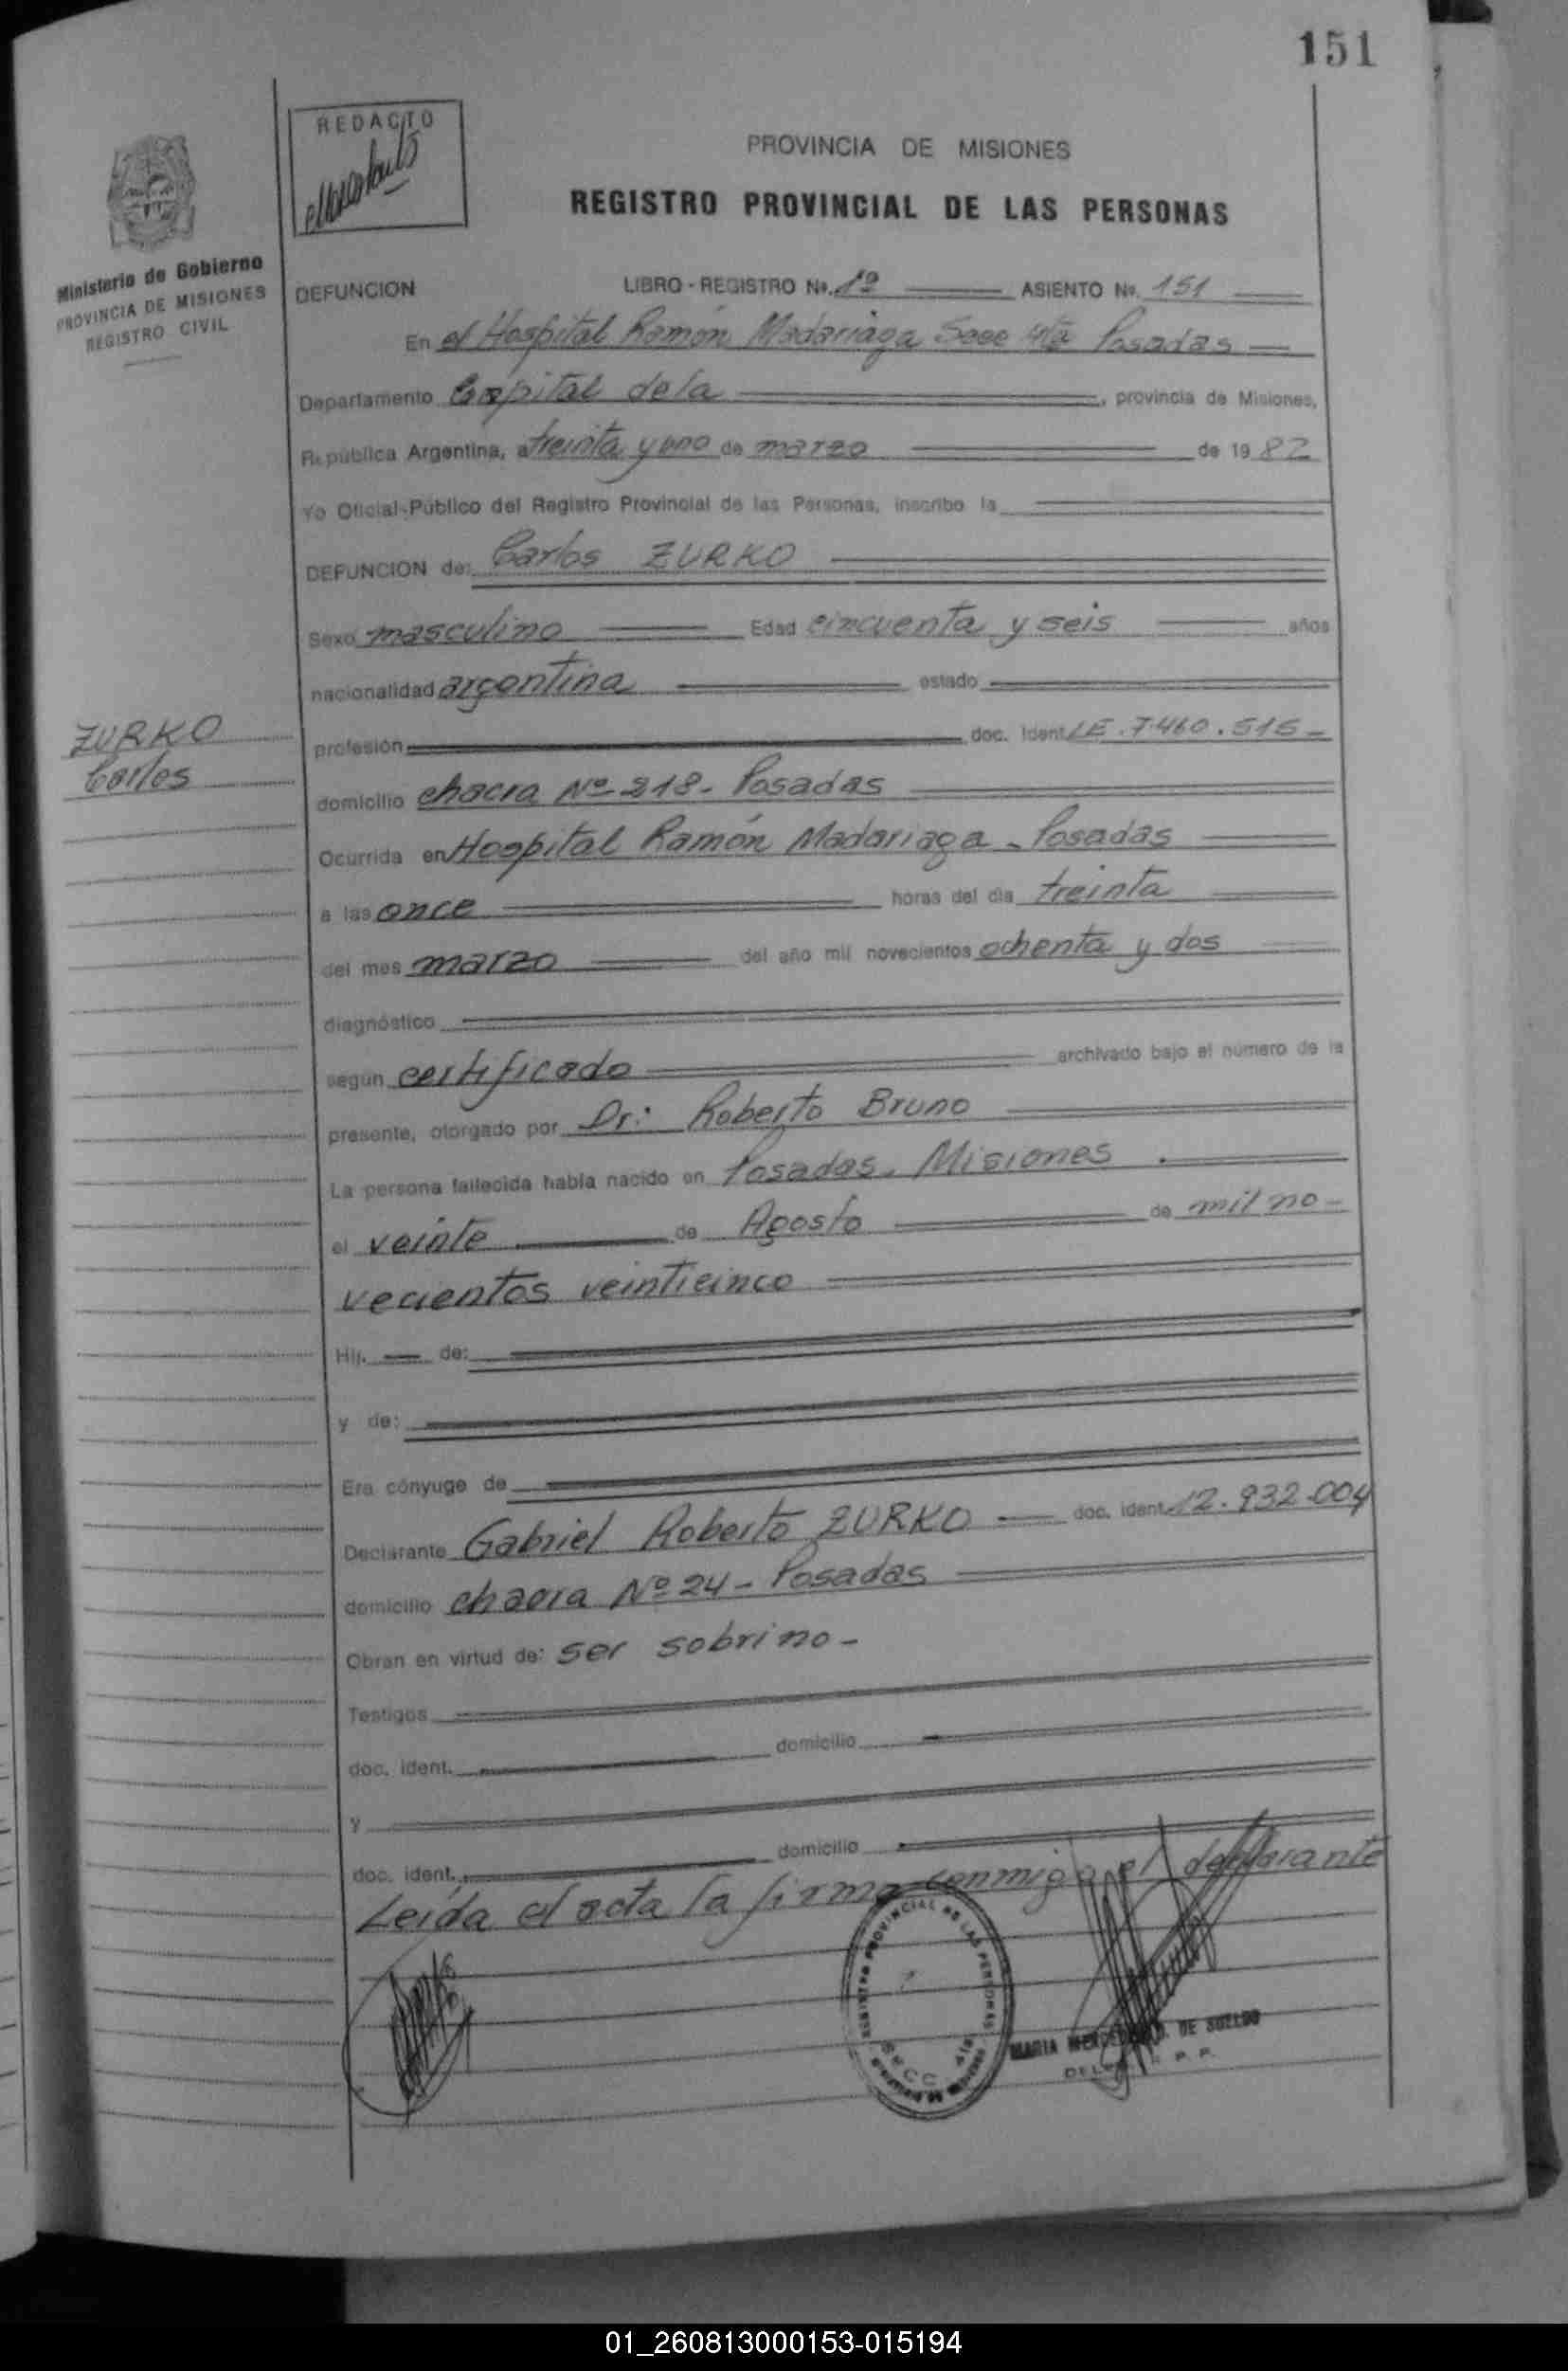 151
REDACTO
PROVINCIA DE MISIONES
REGISTRO PROVINCIAL DE LAS PERSONAS
Ministerio de Gobierno
PROVINCIA DE MISIONES
REGISTRO CIVIL
DEFUNCION LIBRO - REGISTRO No. 1º ASIENTO No. 151
En el Hospital Ramón Madariaga Secc 4ta Posadas
Departamento Capital de la , provincia de Misiones,
República Argentina, a treinta y uno de marzo de 1982
Yo Oficial Público del Registro Provincial de las Personas, inscribo la
DEFUNCION de: Carlos ZURKO
Sexo masculino Edad cincuenta y seis años
nacionalidad argentina estado
ZURKO
Carlos
profesión doc. Ident LE. 7.460.515-
domicilio chacra Nº 218- Posadas
Ocurrida en Hospital Ramón Madariaga - Posadas
a las once horas del dia treinta
del mes marzo del año mil novecientos ochenta y dos
diagnóstico
según certificado archivado bajo el número de la
presente, otorgado por Dr: Roberto Bruno
La persona fallecida había nacido en Posadas. Misiones
el veinte de Agosto de mil no-
vecientos veinticinco
Hij. de:
y de:
Era cónyuge de
Declarante Gabriel Roberto ZURKO doc. ident. 12.932.004
domicilio chacra Nº 24- Posadas
Obran en virtud de: ser sobrino-
Testigos
doc. ident. domicilio
y
doc. ident. domicilio
Leída el acta la firma conmigo el declarante
REGISTRO PROVINCIAL DE LAS PERSONAS
SECC 4ta
MARIA DE SUELDO
01_260813000153-015194